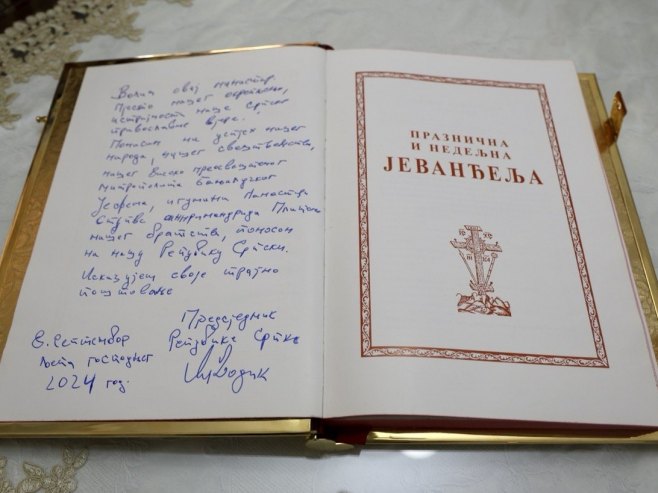 Волим овај манастир
Место нашег окупљања,
истрајности наше Српске
православне вјере.
Поносан на успјех нашег
народа, нашег свештенства,
нашег Високо преосвештеног
митрополита бањалучког
Јефрема, игумана Манастира
архимандрита
нашег братства, поносан
на нашу Републику Српску.
Исказујем своје трајно
поштовање
Предсједник
Републике Српске
М. Додик
8. Септембар
љета господњег
2024 год.
ПРАЗНИЧНА
И НЕДЕЉНА
ЈЕВАНЂЕЉА